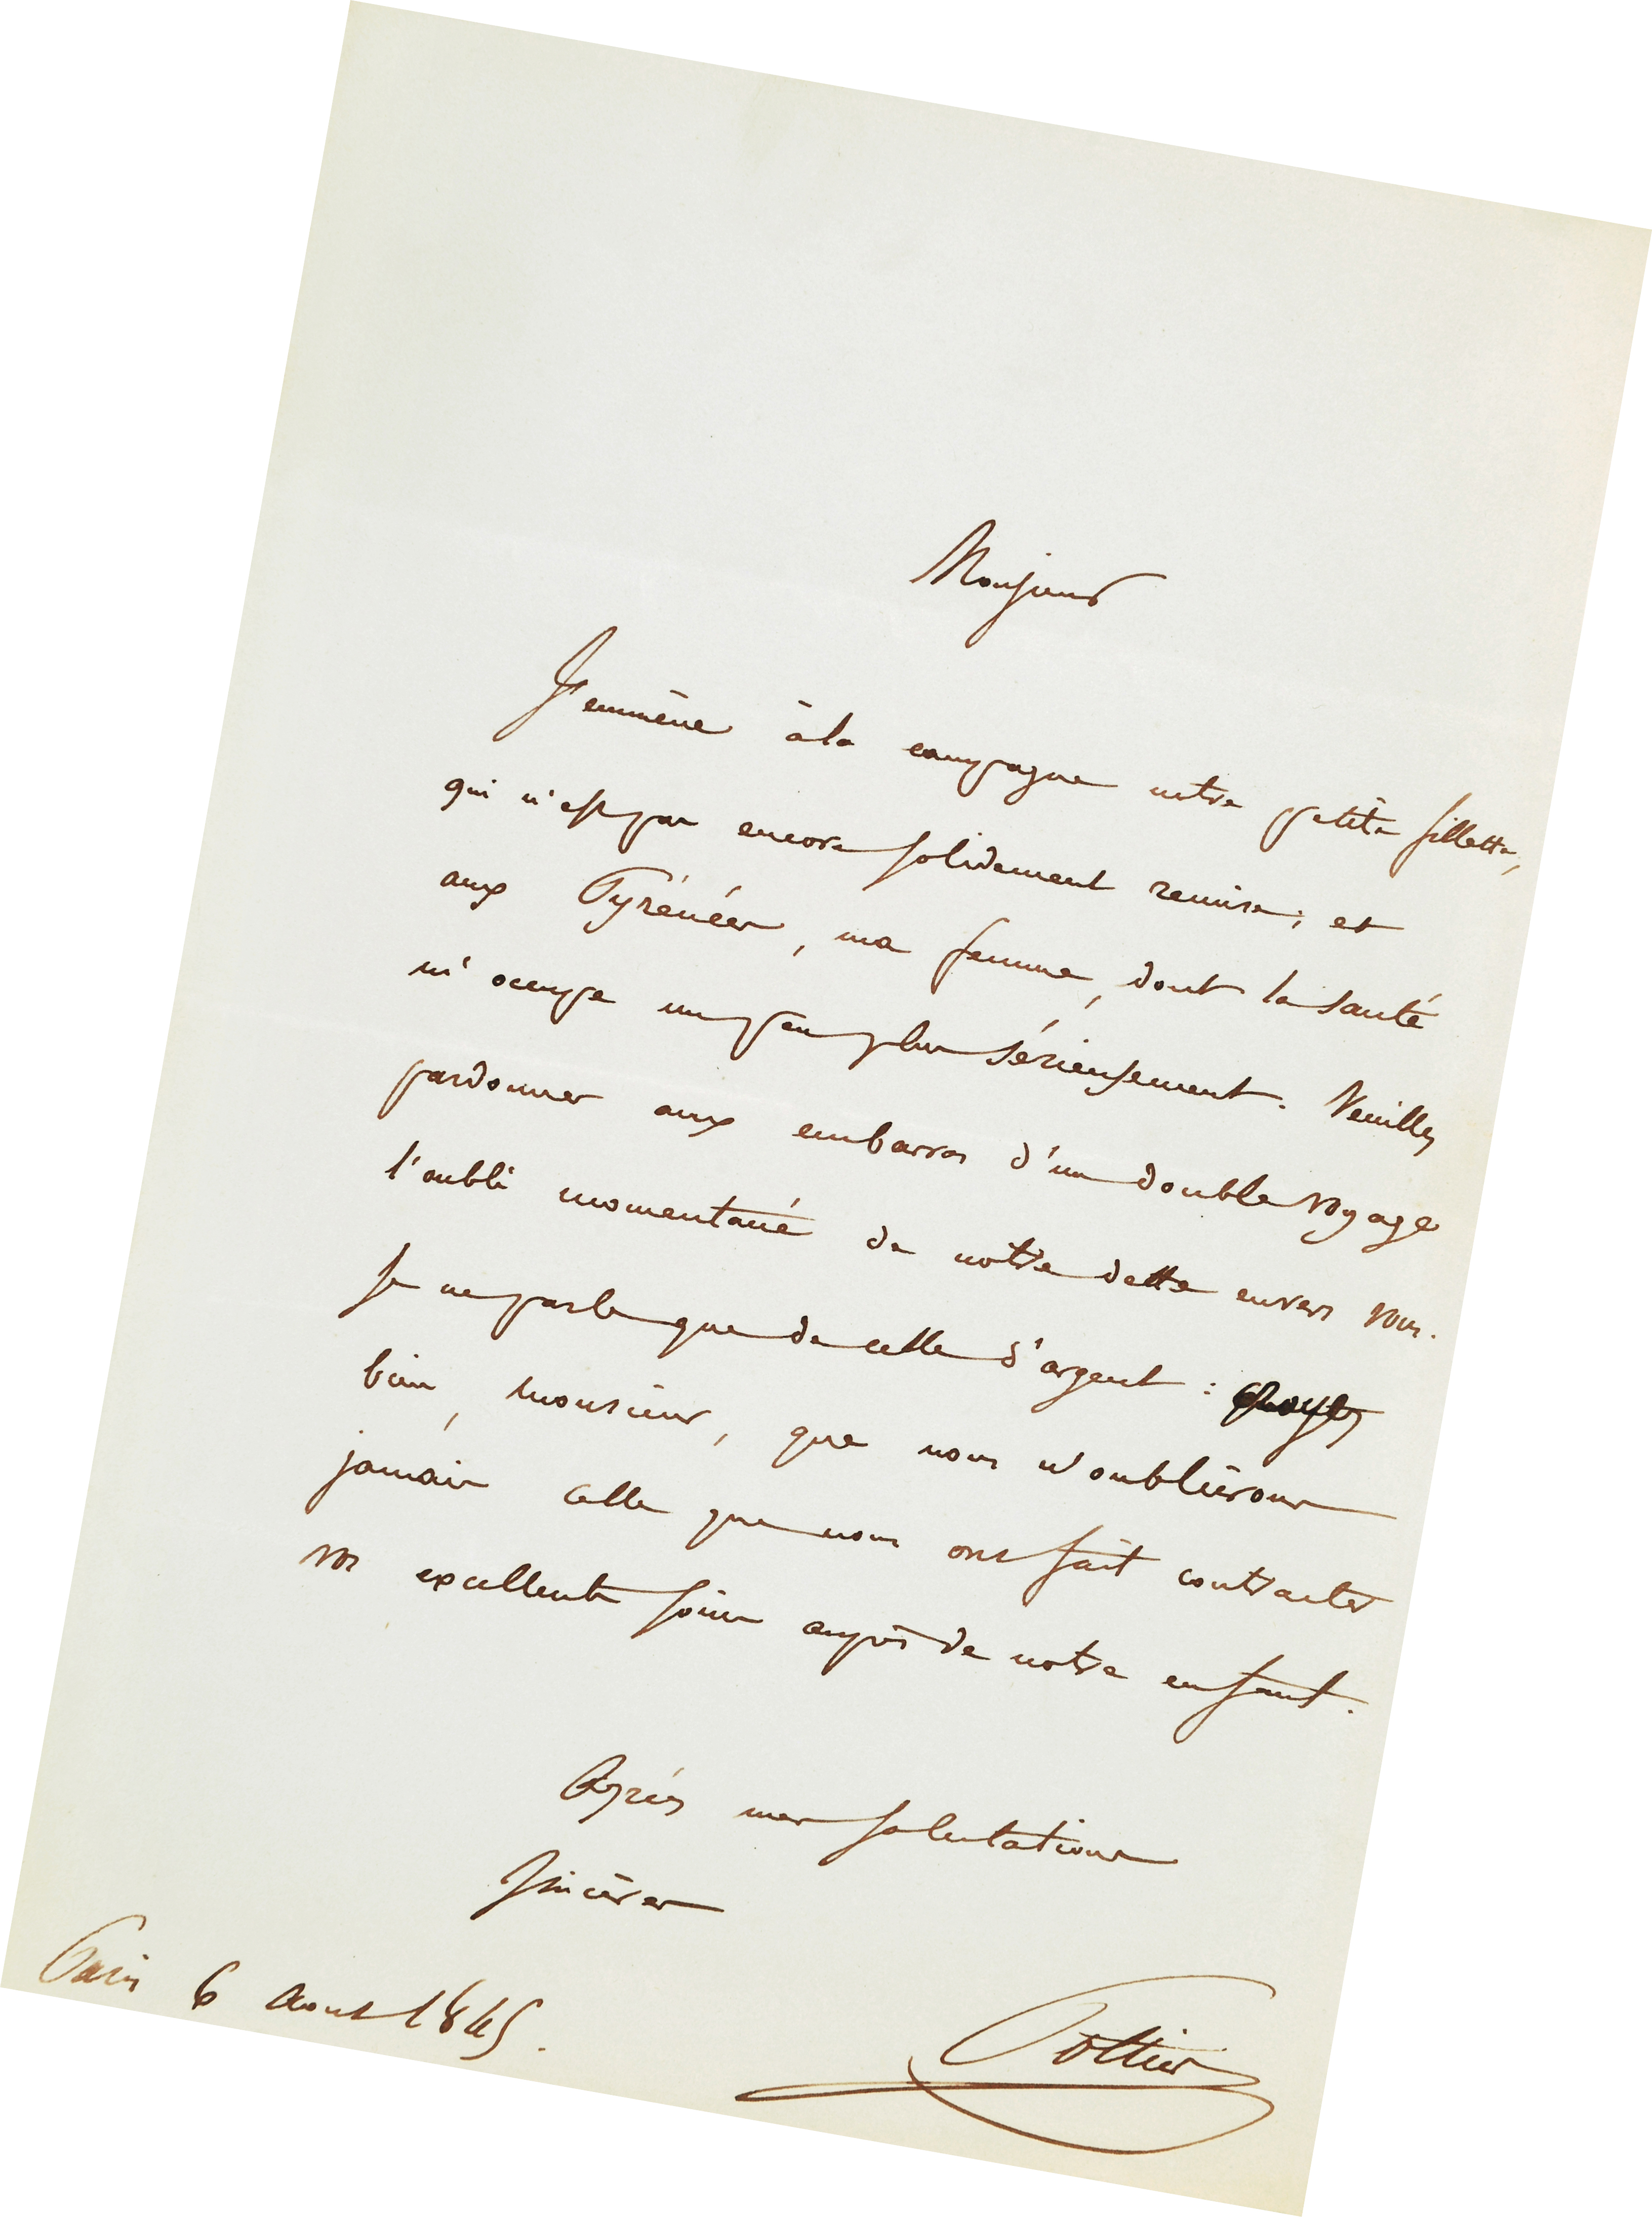 Monsieur
J'emmène à la campagne notre petite fillette,
qui n'est pas encore solidement remise; et
aux Pyrénées, ma femme, dont la santé
m'occupe un peu plus sérieusement. Veuillez
pardonner aux embarras d'un double voyage
l'oubli momentané de notre dette envers vous.
Je ne parle que de celle d'argent : croyez
bien, monsieur, que nous n'oublierons
jamais celle que nous ont fait contracter
vos excellents soins auprès de notre enfant.
Agréez mes salutations
sincères
Paris 6 Aout 1845.
Pottier